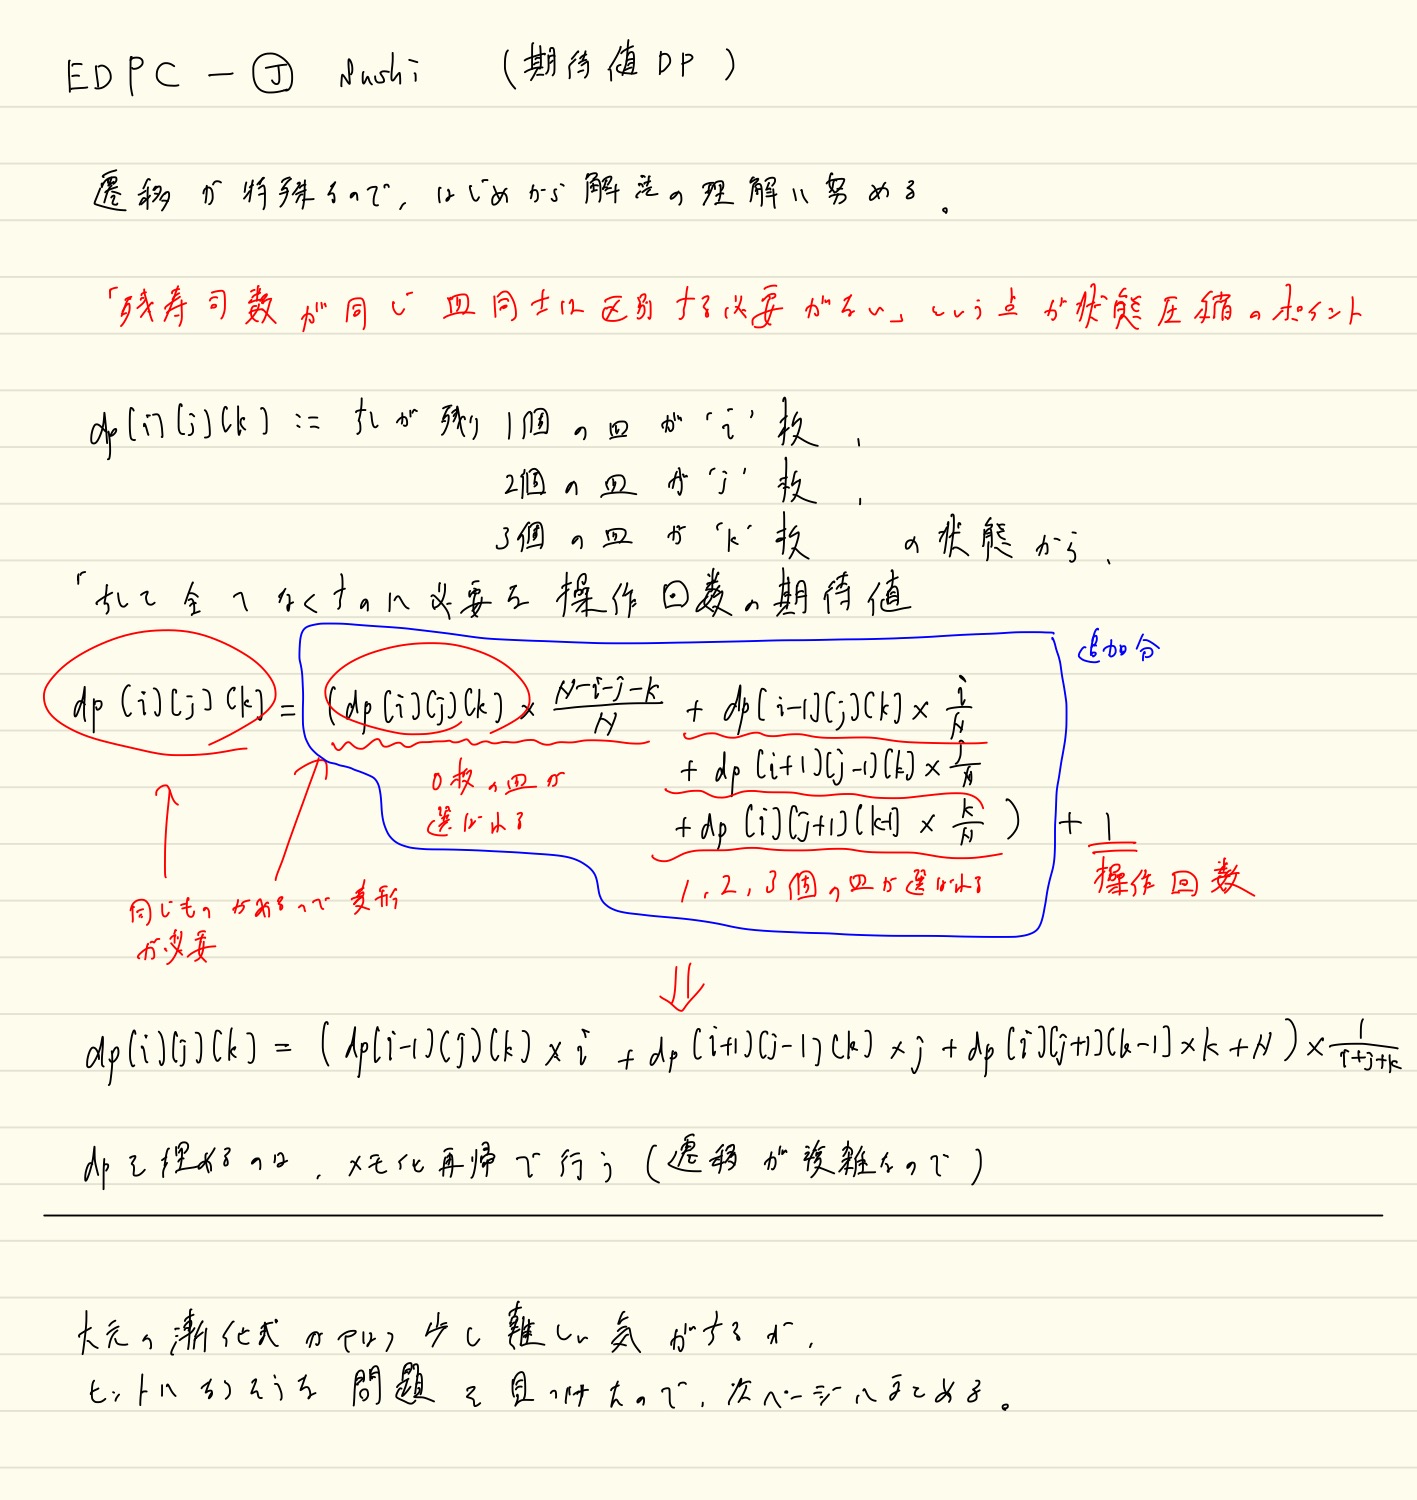 EDPC - Ⓙ Sushi (期待値DP)
遷移が特殊なので、はじめから解法の理解に努める。
「残寿司数が同じ皿同士は区別する必要がない」という点が状態圧縮のポイント
dp[i][j][k] := すしが残り1個の皿が'i'枚、
2個の皿が'j'枚、
3個の皿が'k'枚 の状態から、
「すしを全てなくすのに必要な操作回数の期待値
追加分
dp[i][j][k] = (dp[i][j][k] × \frac{N-i-j-k}{N} + dp[i-1][j][k] × \frac{i}{N}
+ dp[i+1][j-1][k] × \frac{j}{N}
0枚の皿が
選ばれる
+ dp[i][j+1][k-1] × \frac{k}{N} ) + 1
1、2、3個の皿が選ばれる
操作回数
同じものがあるので変形
が必要
⇓
dp[i][j][k] = (dp[i-1][j][k] × i + dp[i+1][j-1][k] × j + dp[i][j+1][k-1] × k + N) × \frac{1}{i+j+k}
dpを埋めるのは、メモ化再帰で行う(遷移が複雑なので)
大元の漸化式がやはり少し難しい気がするが、
ヒントになりそうな問題を見つけたので、次ページにまとめる。